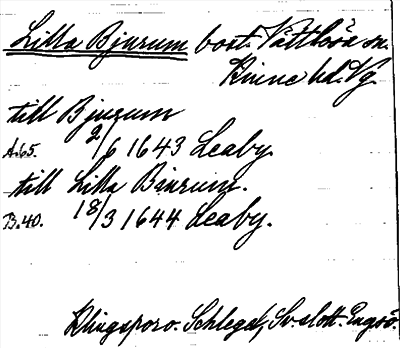 Lilla Bjurum bost. Vättlösa sn.
Kinne hd. Vg.
till Bjurum
A.65. 2/6 1643 Leaby.
till Lilla Bjurum.
B.40. 18/3 1644 Leaby.
Klingsporo. Schlegel, Sv. slott. Engsö.